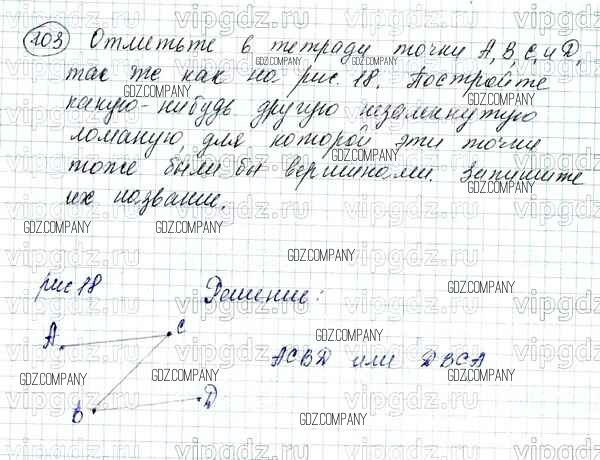 103 Отметьте в тетради точки A, B, C, и D,
так же как на рис. 18. Постройте
какую-нибудь другую незамкнутую
ломаную, для которой эти точки
тоже были бы вершинами. Запишите
их название.
рис 18 Решение:
A C
ACBD или DBCA
B D
vipgdz.ru
GDZ.COMPANY